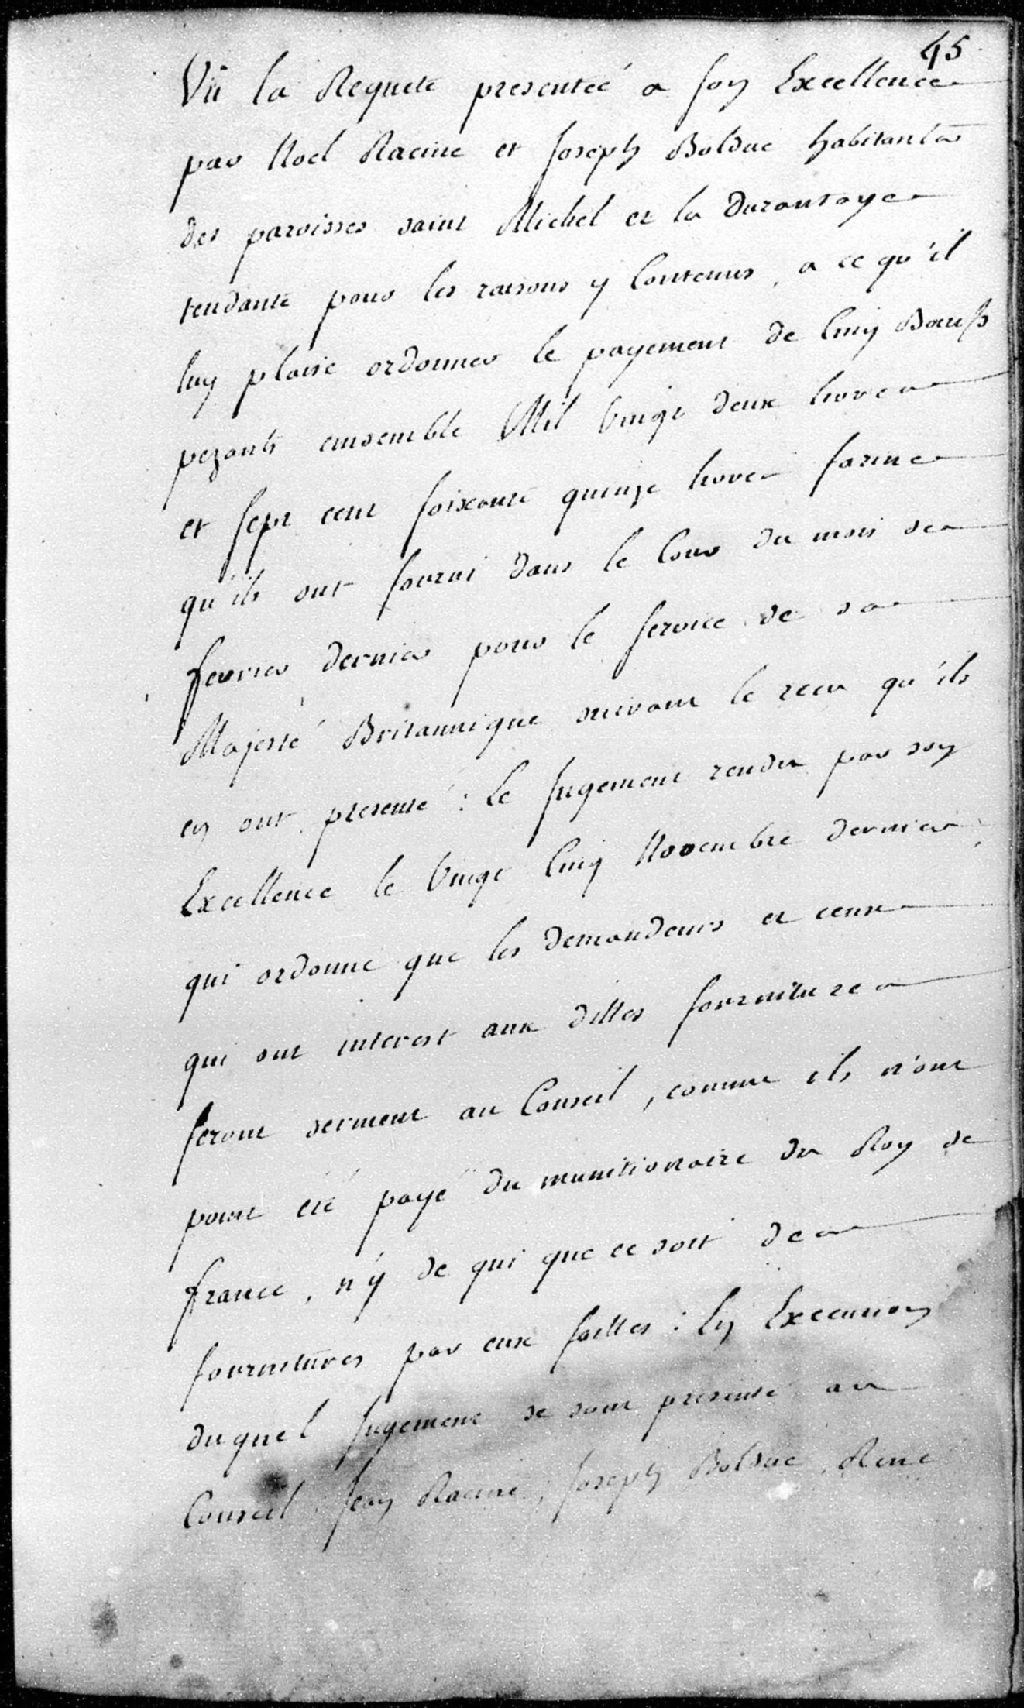 45
Vü la Requete presenteé a son Excellence
par Noel Racine et Joseph Bolduc habitants
des paroisses saint Michel et la Durantaye
tendante pour les raisons y Contenus, a ce qu'il
luy plaise ordonner le payement de Cinq Bœufs
pezants ensemble Mil Vingt deux livres
et sept cent soixante quinze livres farine
qu'ils ont fourni dans le Cour du mois de
fevrier dernier pour le service de sa
Majesté Britannique suivant le recu qu'ils
en ont presenté : le Jugement rendu par son
Excellence le Vingt Cinq Novembre dernier,
qui ordonne que les demandeurs et ceux
qui ont interest aux dittes fournitures
feront serment au Conseil, comme ils n'ont
point eté payé du munitionnaire du Roy de
france, n'y de qui que ce soit des
fournitures par eux faittes : En Execution
duquel Jugement se sont presenté au
Conseil Jean Racine, Joseph Bolduc, René